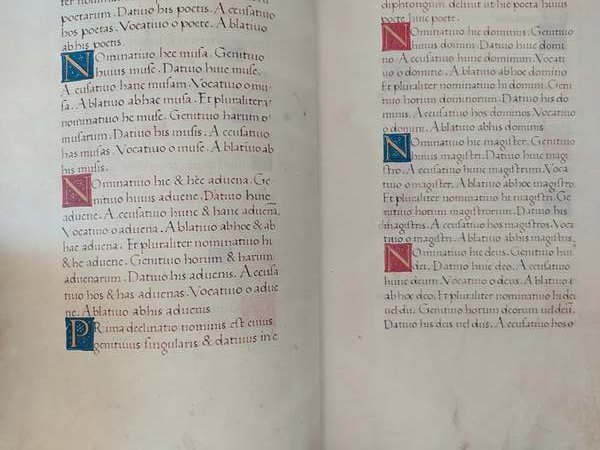 ter nominati
poetarum. Datiuo his poetis. Accusatiuo
hos poetas. Vocatiuo o poete. Ablatiuo
ab his poetis
NOminatiuo hec musa. Genitiuo
huius muse. Datiuo huic muse.
Accusatiuo hanc musam. Vocatiuo o mu
sa. Ablatiuo abhac musa. Et pluraliter
nominatiuo he muse. Genitiuo harum
musarum. Datiuo his musis. Accusatiuo
has musas. Vocatiuo o muse. Ablatiuo ab
his musis.
NOminatiuo hic & hec aduena. Ge
nitiuo huius aduene. Datiuo huic
aduene. Accusatiuo hunc & hanc aduenā
Vocatiuo o aduena. Ablatiuo abhoc & ab
hac aduena. Et pluraliter nominatiuo hi
& he aduene. Genitiuo horum & harum
aduenarum. Datiuo his aduenis. Accusa
tiuo hos & has aduenas. Vocatiuo o adue
ne. Ablatiuo abhis aduenis
PRima declinatio nominis est cuius
genitiuus singularis & datiuus in e
diphtongum desinit ut hic poeta huius
poete huic poete.
NOminatiuo hic dominus. Genitiuo
huius domini. Datiuo huic domi
no. Accusatiuo hunc dominum. Vocati
uo o domine. Ablatiuo abhoc domino
Et pluraliter nominatiuo hi domini. Geni
tiuo horum dominorum. Datiuo his do
minis. Accusatiuo hos dominos Vocatiuo
o domini. Ablatiuo abhis dominis
NOminatiuo hic magister. Genitiuo
huius magistri. Datiuo huic magi
stro. Accusatiuo hunc magistrum. Voca
tiuo o magister. Ablatiuo abhoc magistro.
Et pluraliter nominatiuo hi magistri. Ge
nitiuo horum magistrorum. Datiuo his
magistris. Accusatiuo hos magistros. Voca
tiuo o magistri. Ablatiuo abhis magistris
NOminatiuo hic deus. Genitiuo hui
dei. Datiuo huic deo. Accusatiuo
hunc deum. Vocatiuo o deus. Ablatiuo
abhoc deo. Et pluraliter nominatiuo hi dei
uel dii. Genitiuo horum deorum uel deū.
Datiuo his deis uel diis. Accusatiuo hos